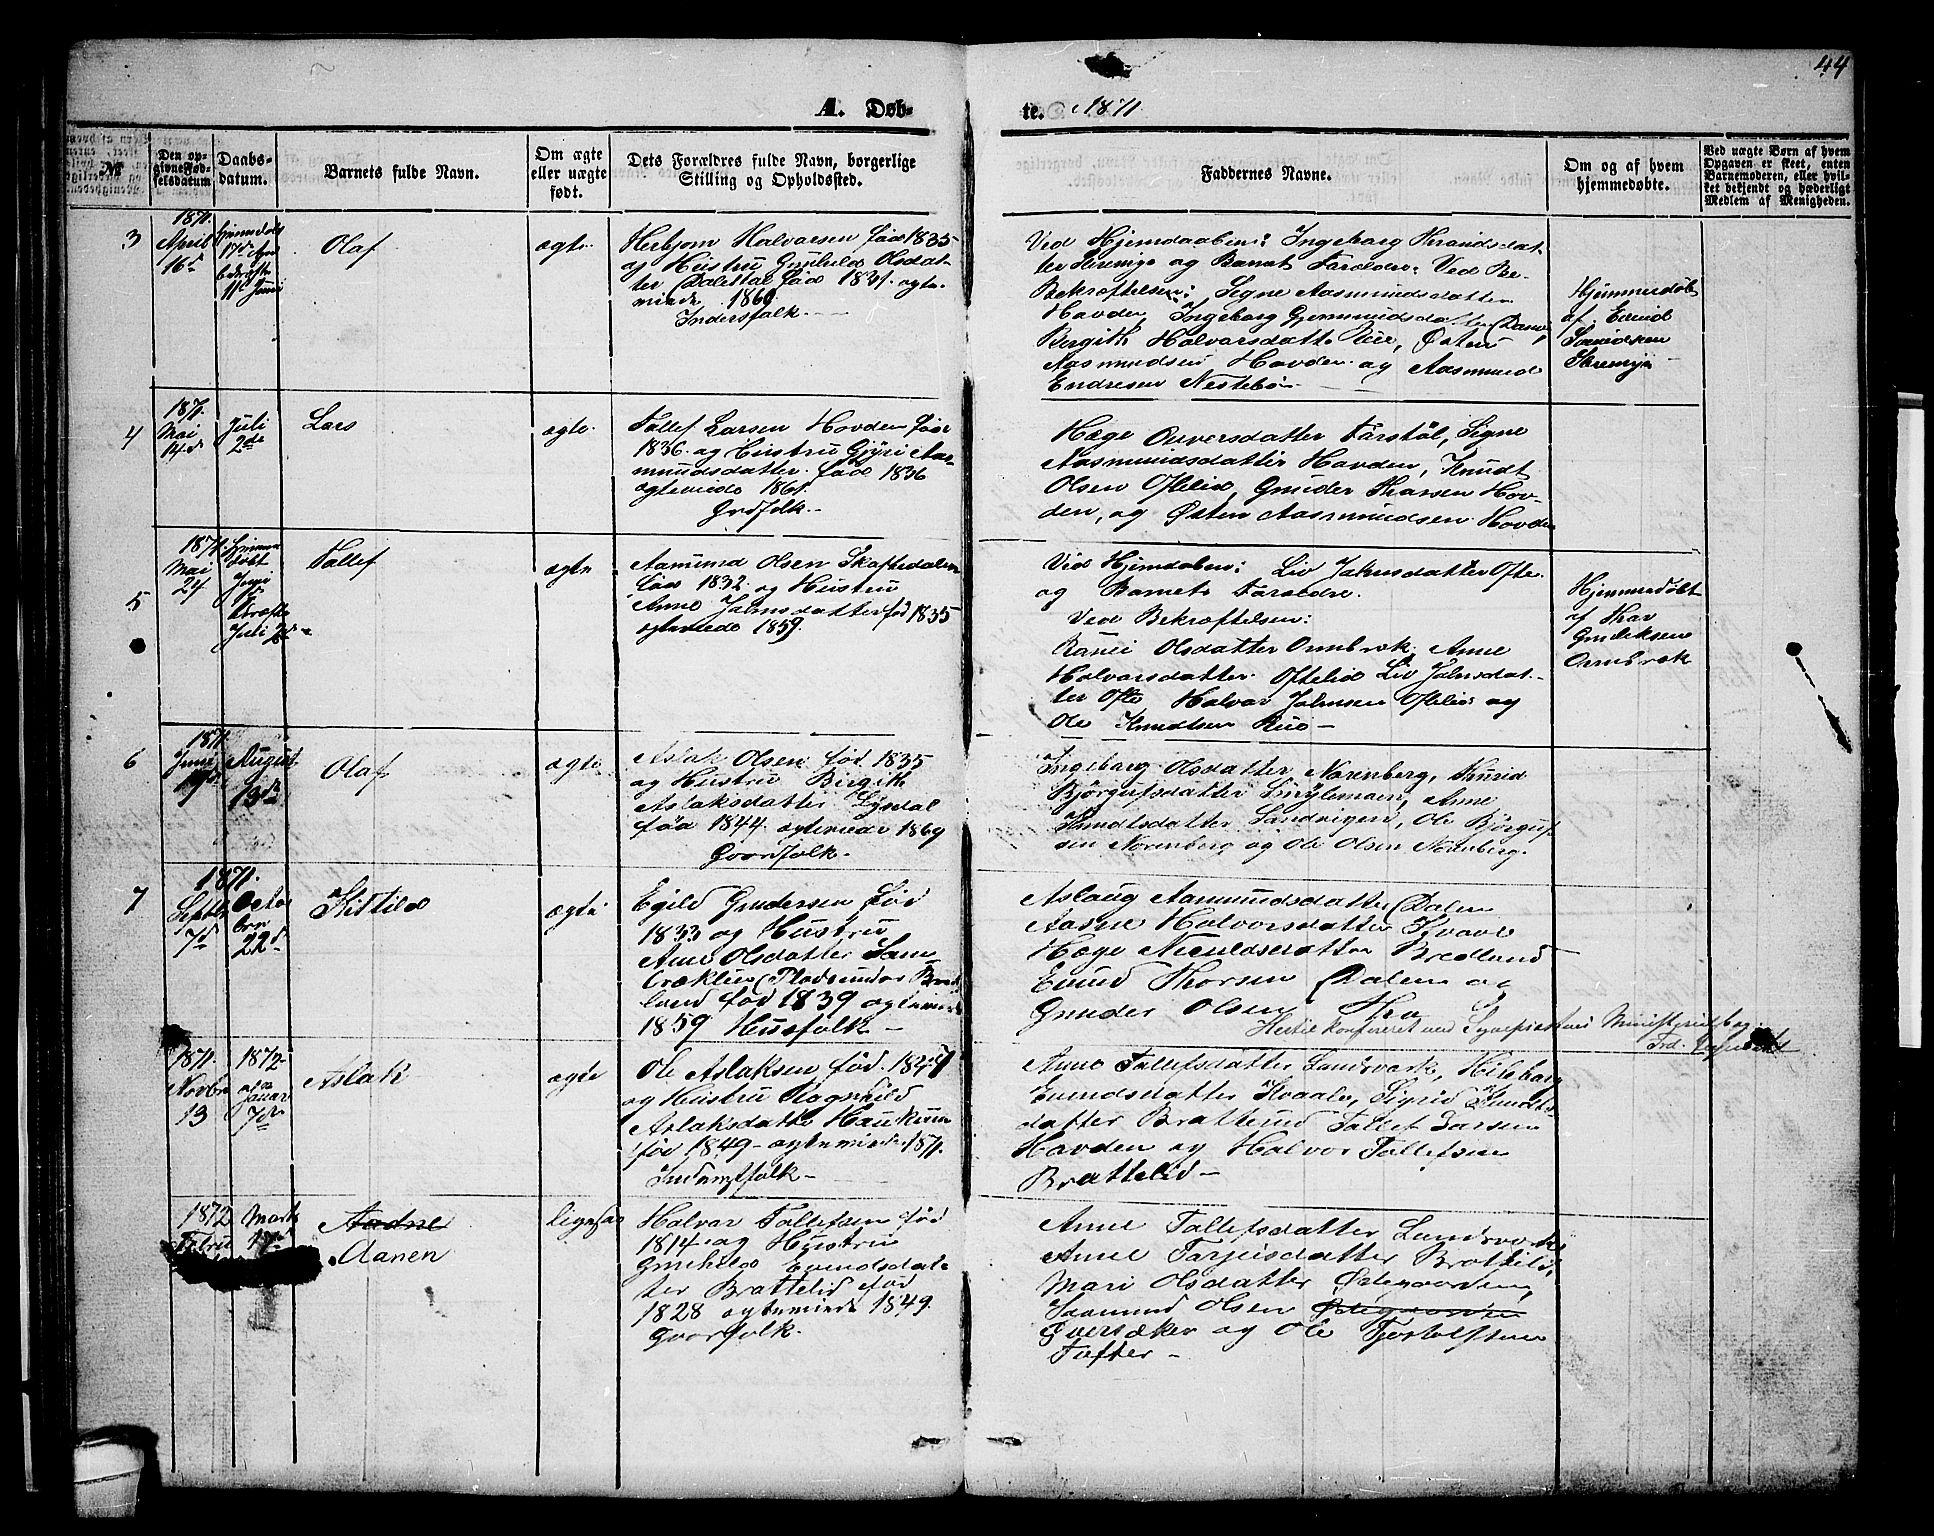 44
A. Døb-
te. 1871.
№
Den op-
givne Fød-
selsdatum
Daabs-
datum.
Barnets fulde Navn.
Om ægte
eller uægte
født.
Dets Forældres fulde Navn, borgerlige
Stilling og Opholdssted.
Faddernes Navne.
Om og af hvem
hjemmedøbte.
Ved uægte Børn af hvem
Opgaven er skeet, enten
Barnemoderen, eller hvil-
ket bekjendt og hæderligt
Medlem af Menigheden.
3
1871.
April
16d
17de
11te Juni
Olaf
ægte
Herbjørn Halvorsen fød 1835
og Hustru Gunhild Olsdat-
ter Dalestøl fød 1831. ægte-
viede 1869
Inderstfolk.
Ved Hjemdaaben: Ingeborg
og Barnets Forældre. Ved Be-
Bekræftelsen: Signe Aasmundsdatter
Hovden, Ingeborg Gjermundsdatter
Bergith Halvorsdatter Rue, Østen
Aasmundsen Hovden og Aasmund
Endresen Nestebø.
Hjemmedøbt
af Eivind
4
1871.
Mai
14d
Juli
2de
Lars
ægte.
Tallef Larsen Hovden fød
1836 og Hustru Gjyri Aas-
mundsdatter fød 1836
ægteviede 1861.
Grdfolk.
Hæge Ouversdatter Førstøl, Signe
Aasmundsdatter Hovden, Knudt
Olsen Oftelid, Gunder Larsen Hov-
den, og Østen Aasmundsen Hovden
5
1871.
Mai
24
døbt
Juli 2d
Tallef
ægte
Aamund Olsen Skafsedalen
fød 1832 og Hustru
Anne Jahnsdatter fød 1835
ægteviede 1859.
Ved Hjemdaben: Liv Jahnsdatter Ofte
og Barnets Forældre.
Ved Bekræftelsen:
Ranei Olsdatter Ormbrek, Anne
Halvorsdatter Oftelid Liv Jahnsdat-
ter Ofte Halvor Jahnsen Oftelid og
Ole Knudtsen Rue
Hjemmedøbt
af Thor
Gunleksen
Ormbrek
6
1871.
Juni
19d
August
13de
Olaf
ægte
Aslak Olsen fød 1835
og Hustru Birgith
Aslaksdatter Lysdal
fød 1844 ægteviede 1869
Gaardfolk.
Ingeborg Olsdatter Norenberg,
Bjørgufsdatter, Anne
Knudtsdatter Sandvigen, Ole Bjørguf-
sen Norenberg og Ole Olsen Norenberg.
7
1871.
Septbr
7d
Octo
ber
22d
Kittild
ægte
Egild Gundersen fød
1833 og Hustru
Anne Olsdatter
land fød 1839 ægteviede
1859 Husfolk
Aslaug Aamundsdatter Dalen
Aasne Halvorsdatter Kvaale
Hæge Nieuldsdatter Bredland
Eivind Thorsen Dalen og
Gunder Olsen Tho
Hertil konfereret med Sognepræstens Ministerialbog
1871.
Novbr
13
1872
Januar
7de
Aslak
ægte
Ole Aslaksen fød 1847
og Hustru Ragnhild
Aslaksdatter Haukum
fød 1849 ægteviede 1871.
Inderstfolk
Anne Tallefsdatter Landsverk, Hileborg
Evindsdatter Kvaale, Sigrid Knudts
datter Brattelid Tallef Larsen
Hovden og Halvor Tallefsen
Brattelid
1872
Februar
Marts
17de
Aadne
Aanen
ligesaa
Halvor Tallefsen fød
1814 og Hustru
Gunhild Evindsdat-
ter Brattelid fød
1828 ægteviede 1849.
Gaardfolk.
Anne Tallefsdatter Landsverk
Anne Tarjeisdatter Brattelid,
Mari Olsdatter Ødegaarden,
Aamund Olsen Ødegaarden
Øversaker og Ole Tjøstolfsen
Tofter